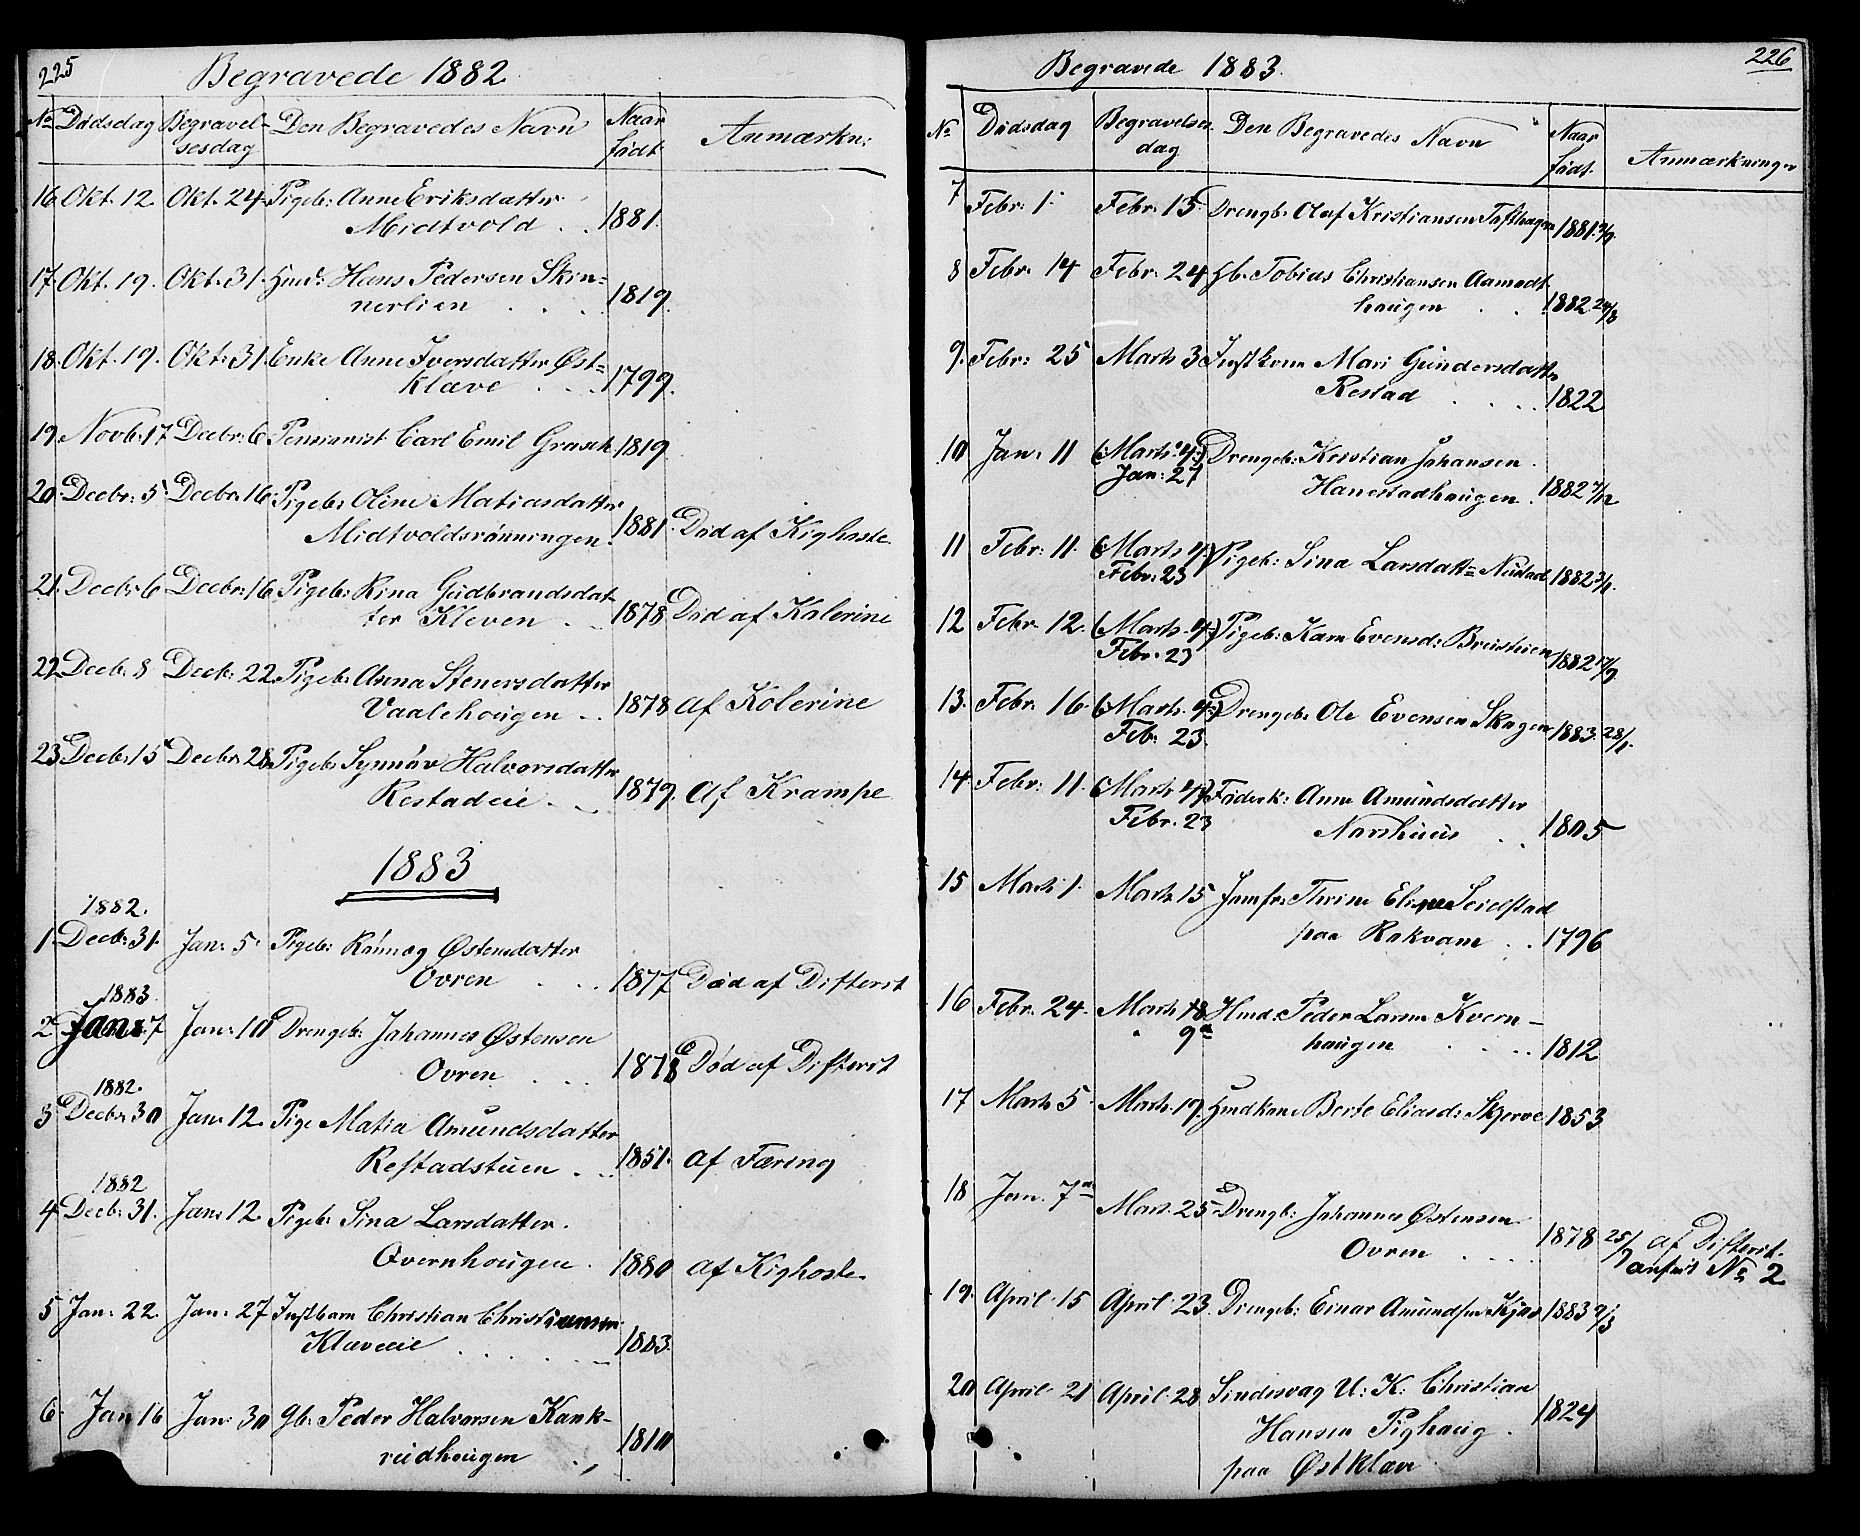 225
Begravede 1882
No Dödsdag Begravel- Den Begravedes Navn Naar Anmærkn:
sesdag født
16 Okt. 12. Okt. 24 Pigeb: Anne Eriksdatter
Midtvold . . 1881.
17. Okt. 19. Okt. 31. Gmd: Hans Pedersen Skin=
nerlien . . . . 1819.
18. Okt. 19. Okt. 31. Enke Anne Iversdatter Øst=
klæve . . . 1799.
19. Novb. 17 Decbr: 6 Pensionist Carl Emil Grasch 1819
20. Decbr: 5. Decbr. 16. Pigeb: Oline Matiasdatter
Midtvoldsrönningen. 1881. Död af Kighoste.
21. Decbr 6 Decbr: 16 Pigeb: Rina Gudbrandsdat-
ter Kleven . . 1878 Död af Kolerine
22. Decb. 8 Decb: 22. Pigeb: Anna Stenersdatter
Vaalehougen . . 1878 af Kolerine
23. Decb. 15 Decbr. 28. Pigeb: Synnöv Halvorsdatter
Restadeie . . 1879. af Krampe
1883
1882.
1. Decb. 31. Jan: 5. Pigeb: Rönnog Østensdatter
Ovren . . . 1877 Död af Difterit
1883.
2. Jan: 7 Jan: 10 Drengeb: Johannes Østensen
Ovren . . . 1878 Död af Difterit
1882.
3 Decbr 30 Jan: 12. Pige Matia Amundsdatter
Restadstuen . . 1851. af Tæring
1882
4. Decb. 31. Jan: 12. Pigeb: Sina Larsdatter.
Overnhougen . 1880 af Kighoste.
5 Jan: 22. Jan: 27 Inftbarn Christian Christiansen
Klæveeie . . . . . 1883.
6. Jan 16 Jan: 30 Gb: Peder Halvorsen Kank-
rudhougen . . 1810
226
Begravede 1883.
No Dödsdag Begravelses Den Begravedes Navn Naar Anmærkninger
dag födt.
7 Febr: 1. Febr. 15. Drengb: Olaf Kristiansen Tofthagen 1881.
8 Febr. 14 Febr. 24 Gb. Tobias Christiansen Aamodt
haugen . . 1882 24/8
9. Febr: 25 Marts 3 Inftkone Mari Gundersdatter
Restad . . . . 1822
10 Jan. 11 (Marts: 4:) Drengeb: Kristian Johansen.
Jan: 27 Hanestadhaugen. 1882
11 Febr: 11. (Marts 4:) Pigeb: Sina Larsdatt= Nustad 1882
Febr. 23
12 Febr. 12. (Marts. 4:) Pigeb: Kari Evensd: Breistuen 1882
Febr. 23
13. Febr. 16. (Marts. 4:) Drengeb: Ole Evensen Skagen 1883. 28/1.
Feb: 23.
14. Febr: 11. (Marts 4:) Föderk: Anne Amundsdatter
Febr. 23 Norshuus . . 1805
15 Marts 1. Marts 15 Jomfr: Thrine Seielstad
paa Rakvam . . 1796
16 Febr. 24. Marts Hmd: Peder Larsen Kvern-
9de haugen . . . . 1812
17 Marts 5. Marts. 17. Gmdkone Berte Eliasd: Skjerve 1853
18 Jan. 7de Marts. 25 Drengb: Johannes Østensen
Ovren . . . 1878 25/7 af Difterit.
anført No 2
19. April. 15 April. 23. Drengeb: Einar Amundsen Kjøs 1883
20 April. 21 April. 28 Sindssvag U: K: Christian
Hansen Pighaug . 1824
paa Østklæv.